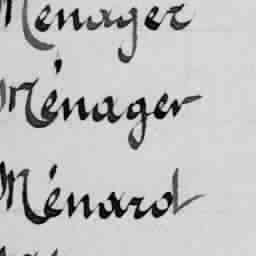 Ménager
Ménager
Ménard